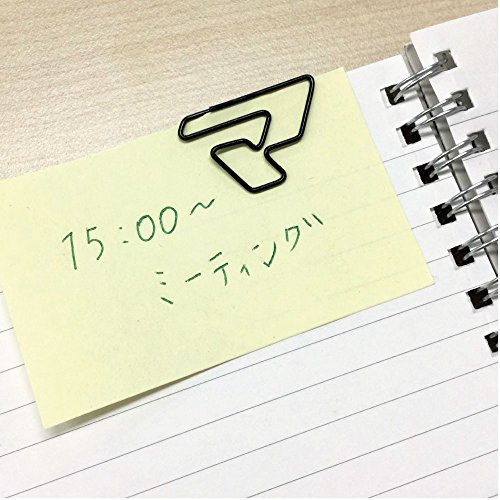 15:00～
ミーティング